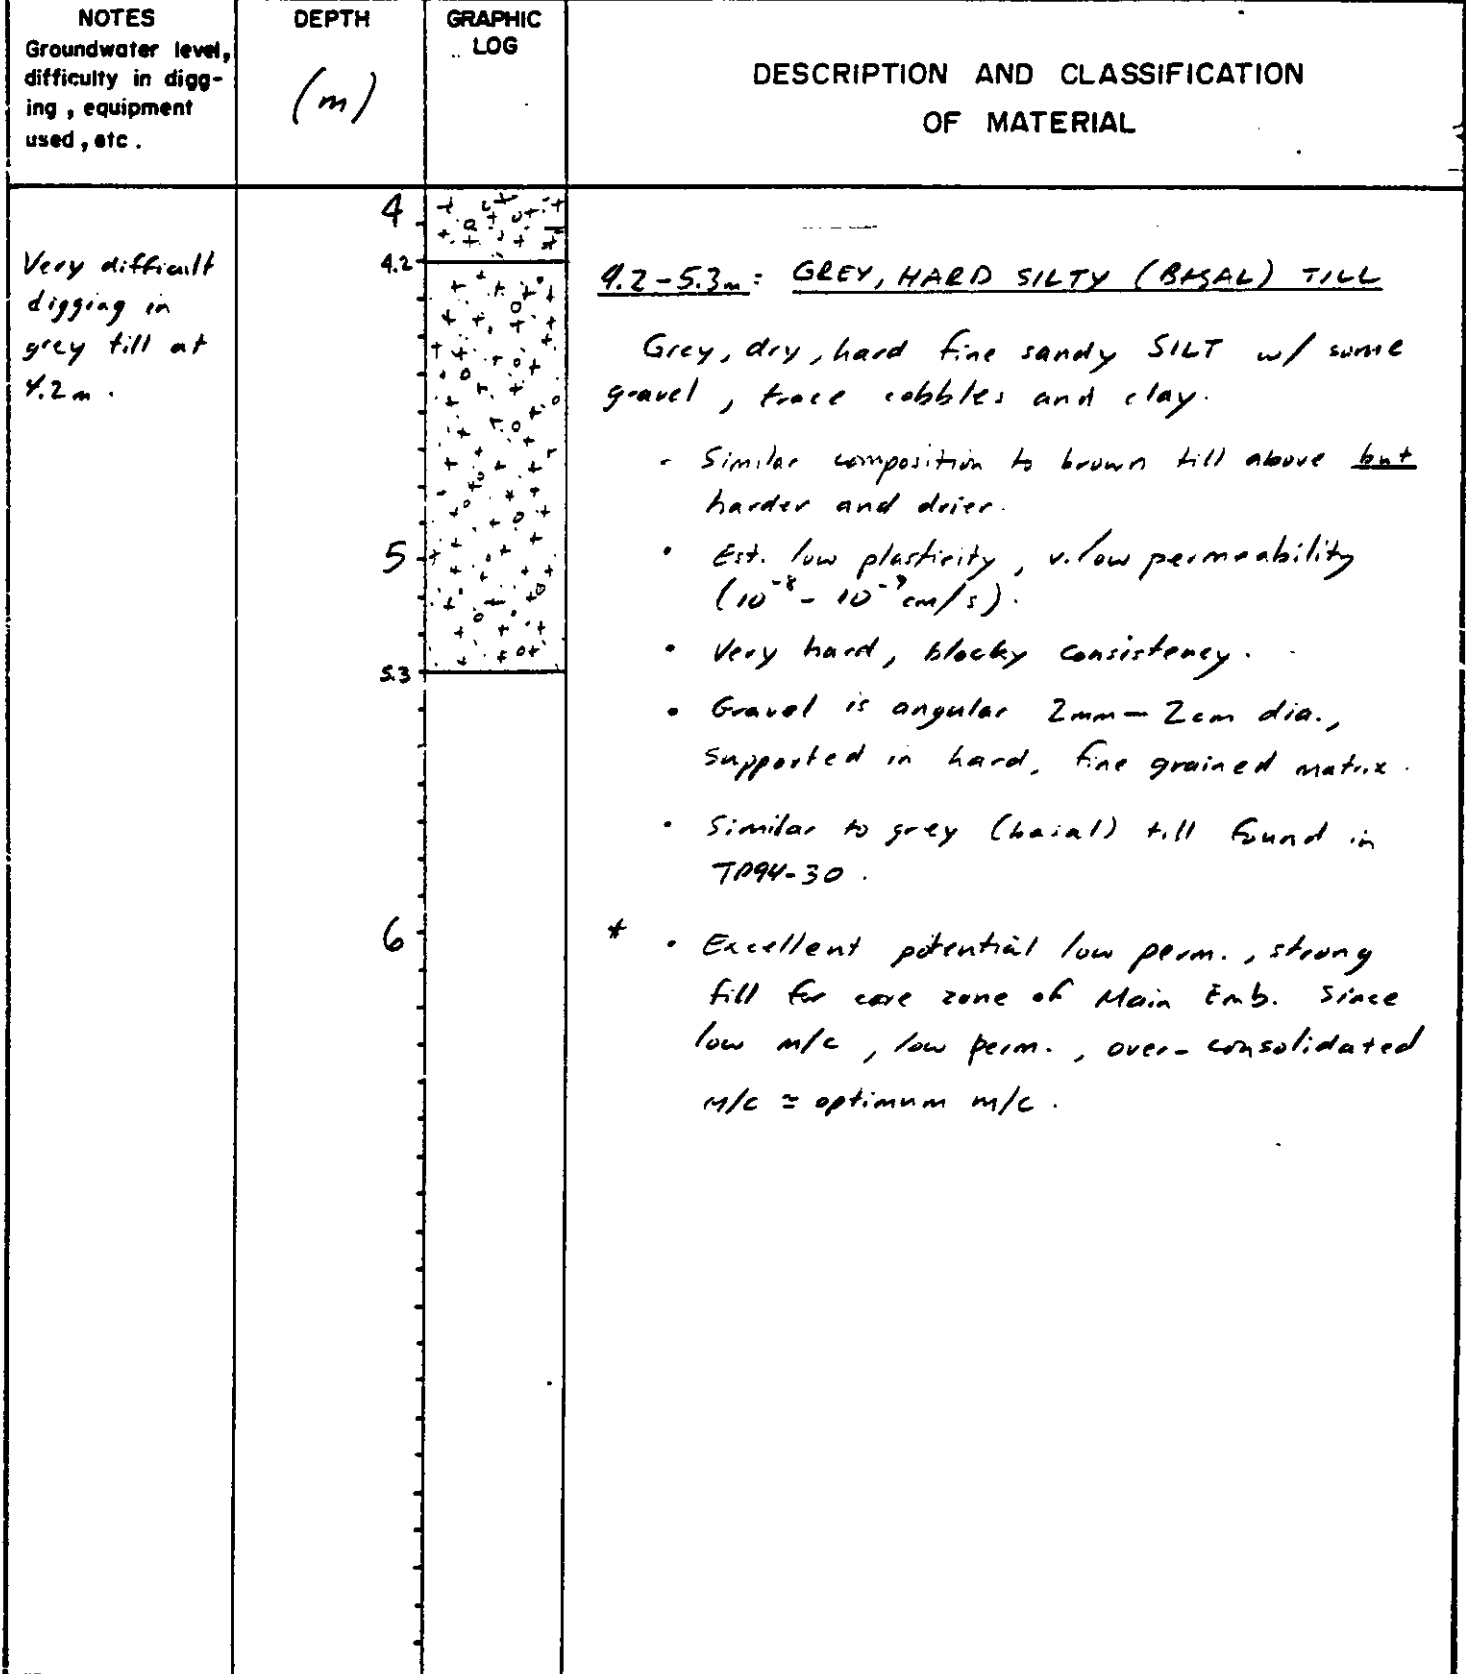 NOTES
Groundwater level,
difficulty in digg-
ing, equipment
used, etc.
DEPTH
(m)
GRAPHIC
LOG
DESCRIPTION AND CLASSIFICATION
OF MATERIAL
Very difficult
digging in
grey till at
4.2 m.
4
4.2
5
5.3
6
4.2-5.3m: GREY, HARD SILTY (BASAL) TILL
Grey, dry, hard fine sandy SILT w/ some
gravel, trace cobbles and clay.
- Similar composition to brown till above but
harder and drier.
• Est. low plasticity, v. low permeability
(10⁻⁸ - 10⁻⁹ cm/s).
• Very hard, blocky consistency.
• Gravel is angular 2mm - 2cm dia.,
supported in hard, fine grained matrix.
• Similar to grey (basal) till found in
TP94-30.
* • Excellent potential low perm., strong
fill for core zone of Main Emb. Since
low m/c, low perm., over-consolidated
m/c ≃ optimum m/c.